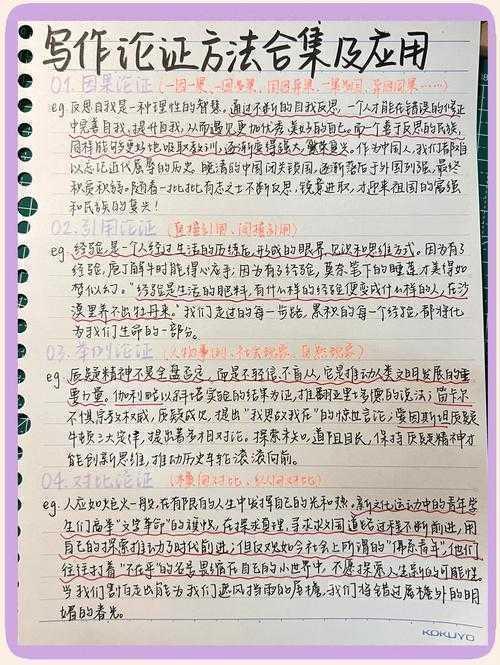 写作论证方法合集及应用
01. 因果论证(一因一果、一因多果、同因异果、一果多因、异因同果……)
eg. 反思自我是一种理性的智慧。通过不断的自我反思,一个人才能在错误的修正
中完善自我、提升自我,从而遇见更加优秀、美好的自己。而一个善于反思的民族,
同样能够更好地吸取教训,逐渐变得强大、繁荣复兴。作为中国人,我们都难
以忘记近代屈辱的历史。晚清的中国闭关锁国,逐渐落后于外国列强,最终
积贫积弱。随着一批批有志之士不断反思,锐意进取,才迎来祖国的富强
和民族的复兴!
02. 引用论证(直接引用、间接引用)
eg. 经验,是一个人经过生活的历练后,形成的眼界、见识和思维方式。因为有了
经验,庖丁解牛时能得心应手;因为有了经验,莫奈笔下的睡莲才美得如
梦似幻。"经验是生活的肥料,有什么样的经验便变成什么样的人,在沙
漠里养不出牡丹来。"我们走过的每一步路,累积的每一个经验,都将化
为我们生命的一部分。
03. 举例论证(人物事例、社会现象、自然现象)
eg. 质疑精神不是全盘否定,而是不轻信、不盲从,它是推动人类文明发展的重
要力量。伽利略以斜塔实验的结果为证,推翻亚里士多德的说法;笛卡尔
不惧宗教权威,质疑成见,提出"我思故我在"的惊世言论;爱因斯坦质疑
牛顿三大定律,提出著名相对论。探索未知,道阻且长,保持质疑精神才
能创新思维,推动历史车轮滚滚向前。
04. 对比论证(横向对比、纵向对比)
eg. 人应如炬火一般,在有限的人生中发挥自己的光和热。新文化运动中的青年学
生们高举"文学革命"的旗帜,在探求真理、寻求求国道路过程不断前进,用
自己的探索推动了时代前进;但反观如今社会上所谓的"佛系青年",他们
往往打着"不在乎"的名号畏缩在自己的小世界中,不愿探索人生新的可能性。
当我们割白走出能为我们遮风挡雨的屋檐,我们将错过屋檐外的明
媚的春光。
KOKUYO